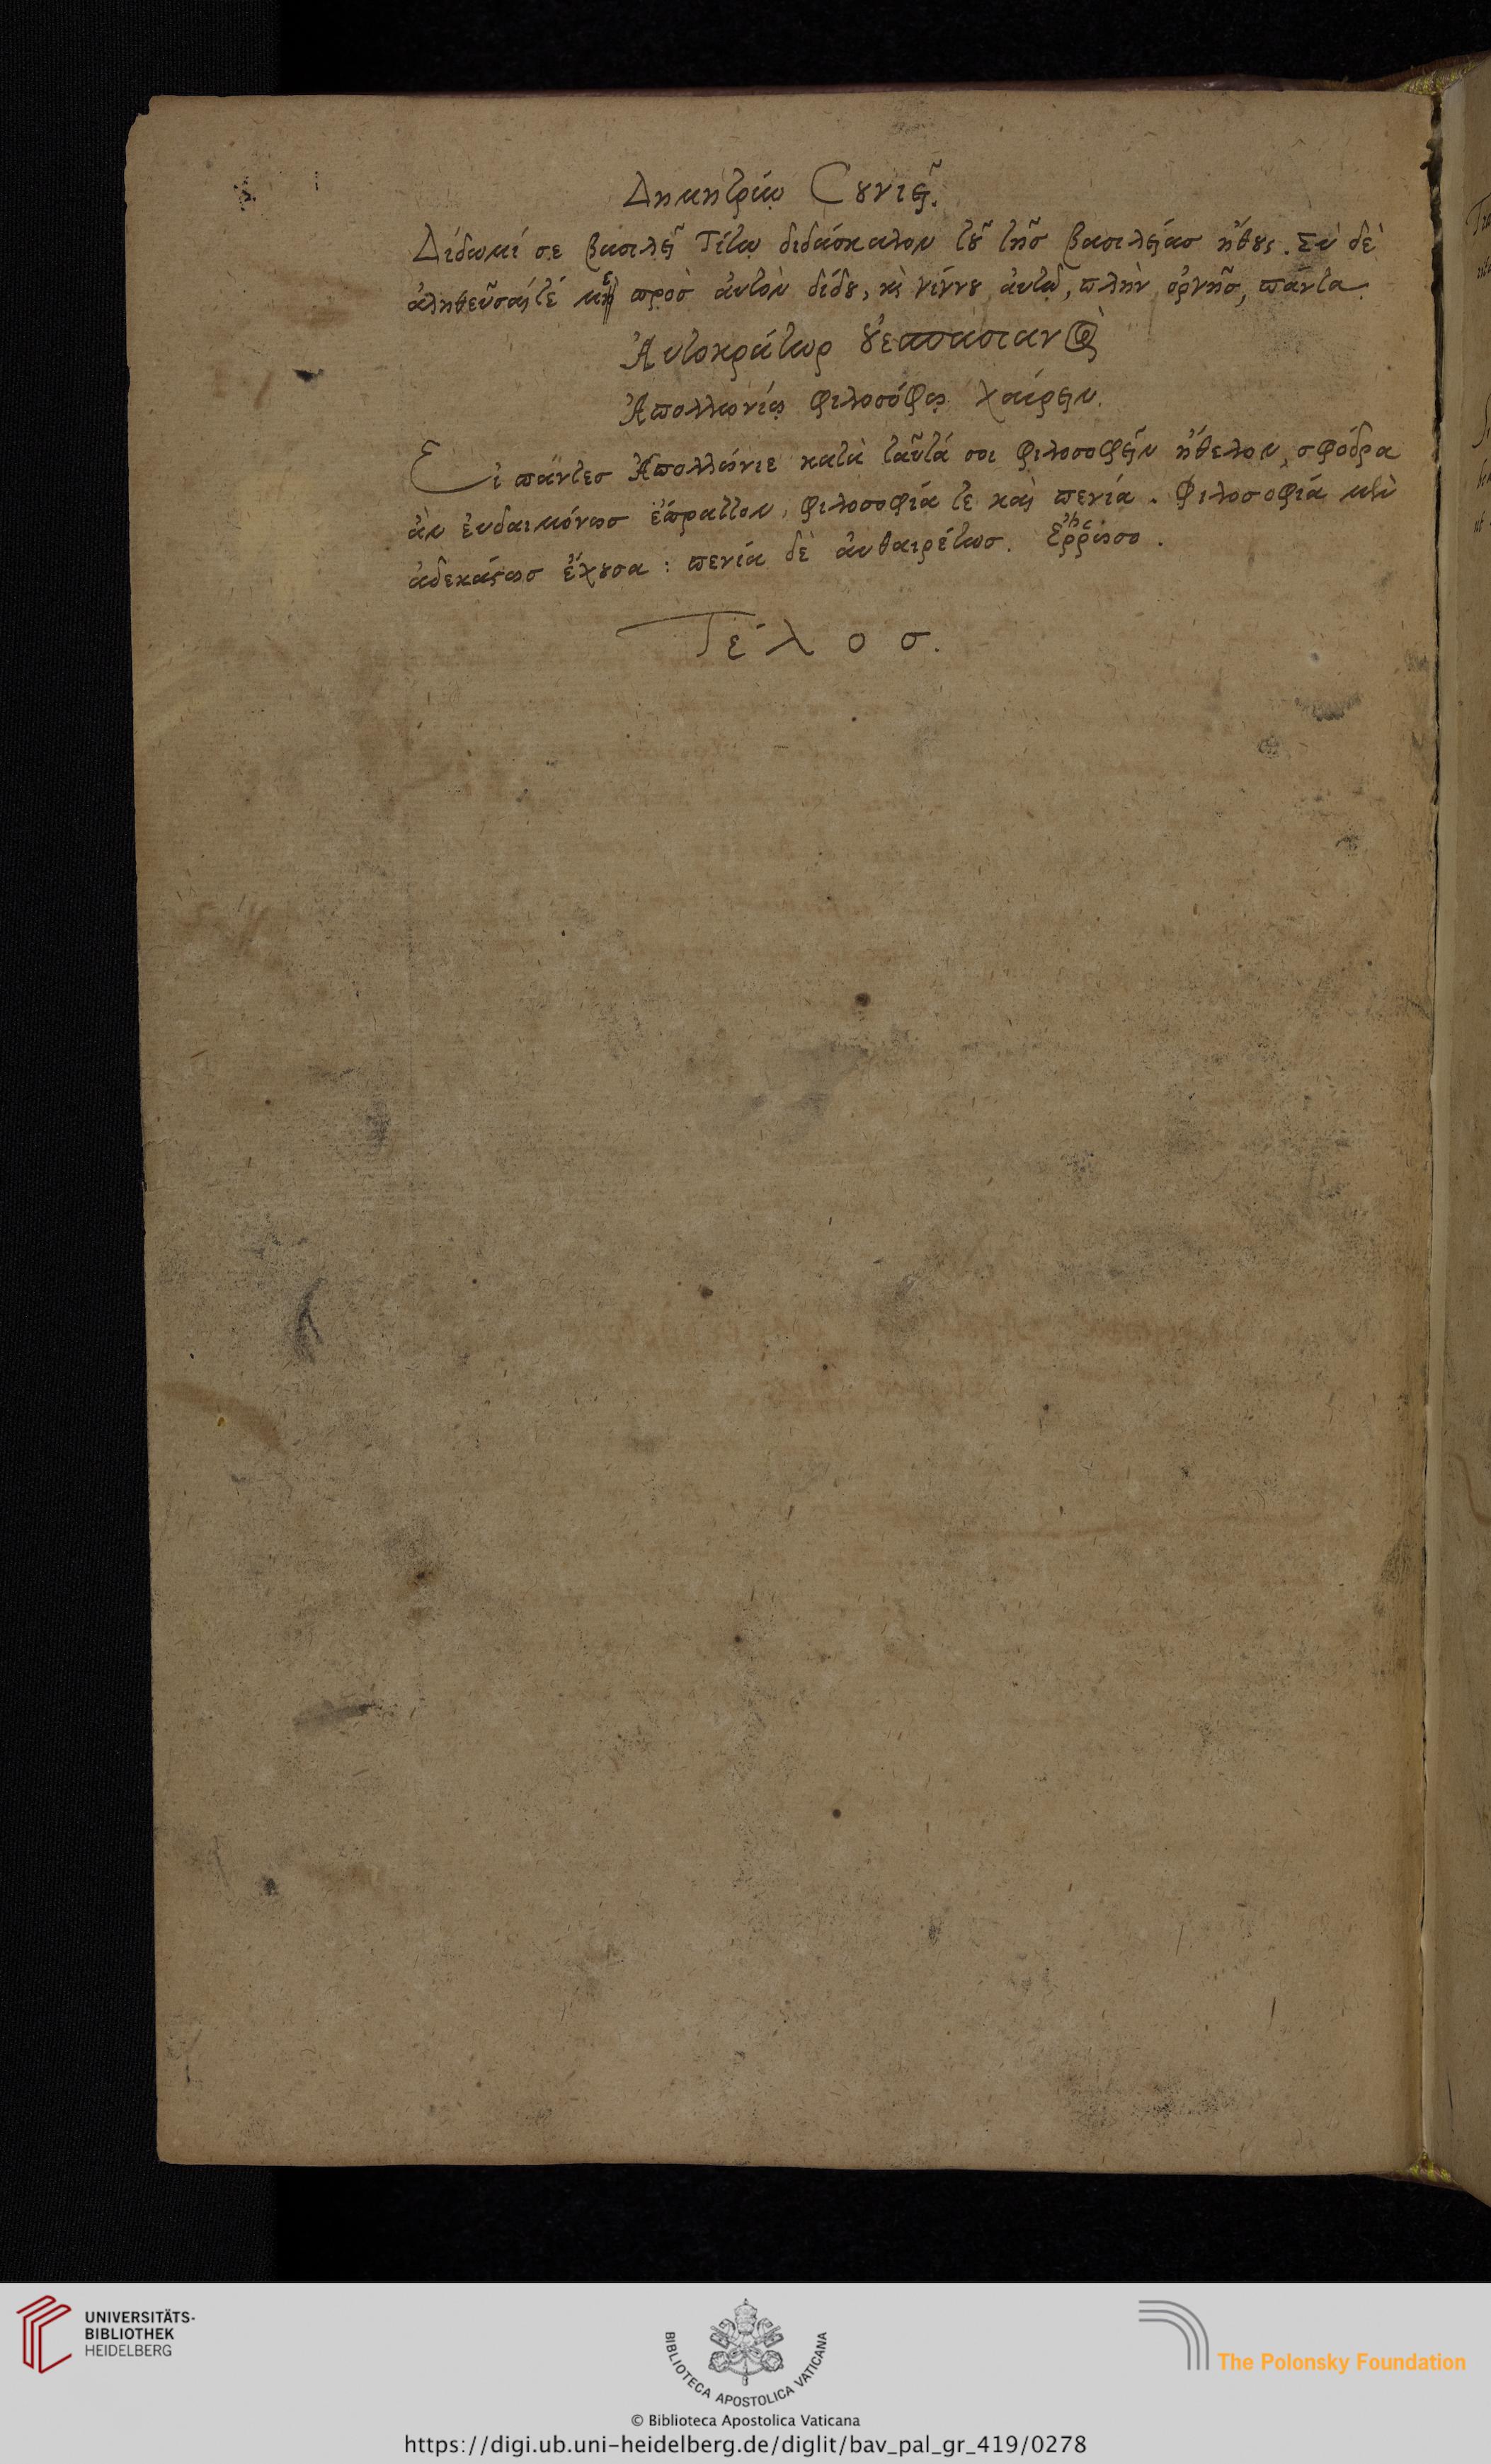 Δημητρίῳ Κυνιεῖ.
Δίδωμί σε βασιλεῖ Τίτῳ διδάσκαλον τοῦ τῆσ βασιλείασ ἤθους. Σὺ δὲ
ἀληθεῦσαί τέ με πρὸσ ἀυτὸν δίδου, καὶ γίγνου ἀυτῷ, πλὴν ὀργῆσ, πάντα.
Ἀυτοκράτωρ Ὀυεσπασιανὸς
Ἀπολλωνίῳ φιλοσόφῳ χαίρειν.
Εἰ πάντεσ Ἀπολλώνιε κατὰ ταῦτά σοι φιλοσοφεῖν ἤθελον, σφόδρα
ἂν ἐυδαιμόνωσ ἔπραττον, φιλοσοφία τε καὶ πενία. Φιλοσοφία μὲν
ἀδεκάστωσ ἔχουσα : πενία δὲ ἀυθαιρέτωσ. Ἔρρωσο.
Τέλοσ.
UNIVERSITÄTS-
BIBLIOTHEK
HEIDELBERG
BIBLIOTECA APOSTOLICA VATICANA
The Polonsky Foundation
© Biblioteca Apostolica Vaticana
https://digi.ub.uni-heidelberg.de/diglit/bav_pal_gr_419/0278